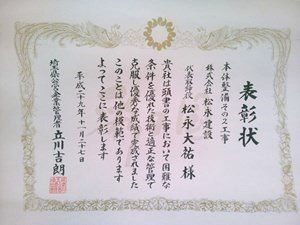 表彰状
本体整備その2工事
株式会社 松永建設
代表取締役 松永大祐 様
貴社は頭書の工事において困難な
条件を優れた技術と適正な管理で
克服し優秀な成績で完成されました
このことは他の模範であります
よってここに表彰します
平成二十九年十一月二十七日
埼玉県公営企業管理者
立川吉朗